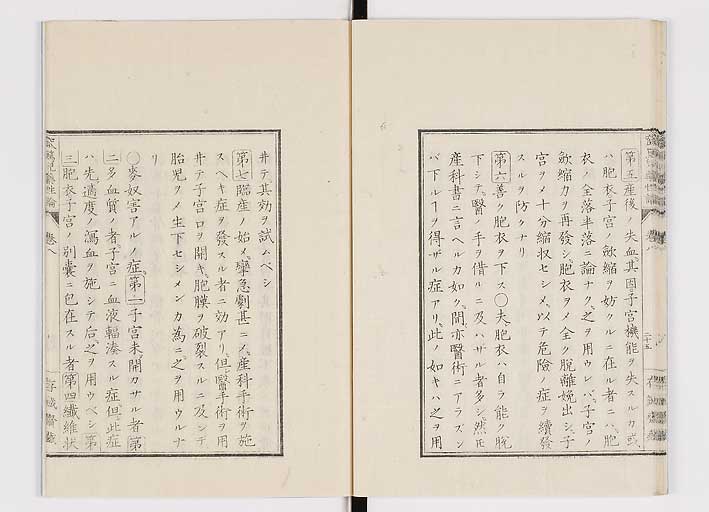 第五産後ノ失血、其因子宮機能ヲ失スルカ或
ハ胞衣子宮ノ歛縮ヲ妨クルニ在ル者ニハ、胞
衣ノ全落半落ニ論ナク、之ヲ用ウレバ、子宮ノ
歛縮力ヲ再發シ、胞衣ヲメ全ク脱離娩出シ、子
宮ヲメ十分縮收セシメ、以テ危險ノ症ヲ續發
スルヲ防クナリ
第六善ク胞衣ヲ下ス〇夫、胞衣ハ自ラ能ク脱
下シテ、醫ノ手ヲ借ルニ及ハザル者多シ、然𪜈
産科書ニ言ヘルカ如ク、間、亦醫術ニアラズン
バ下ルヿヲ得ザル症アリ、此ノ如キハ之ヲ用
井テ其効ヲ試ムベシ
第七臨産ノ始メ、攣急劇甚ニメ、産科手術ヲ施
スヘキ症ヲ發スル者ニ効アリ、但、醫手術ヲ用
井テ子宮口ヲ開キ、胞膜ヲ破裂スルニ及ンデ
胎児ヲメ生下セシメンカ為ニ、之ヲ用ウルナ
リ
〇麥奴害アルノ症、第一子宮未、開カサル者第
二多血質ノ者、子宮ニ血液輻湊スル症、但、此症
ハ先適度ノ瀉血ヲ施シテ后、之ヲ用ウベシ第
三胞衣子宮ノ別囊ニ包在スル者第四纎維状
卷八
二十五